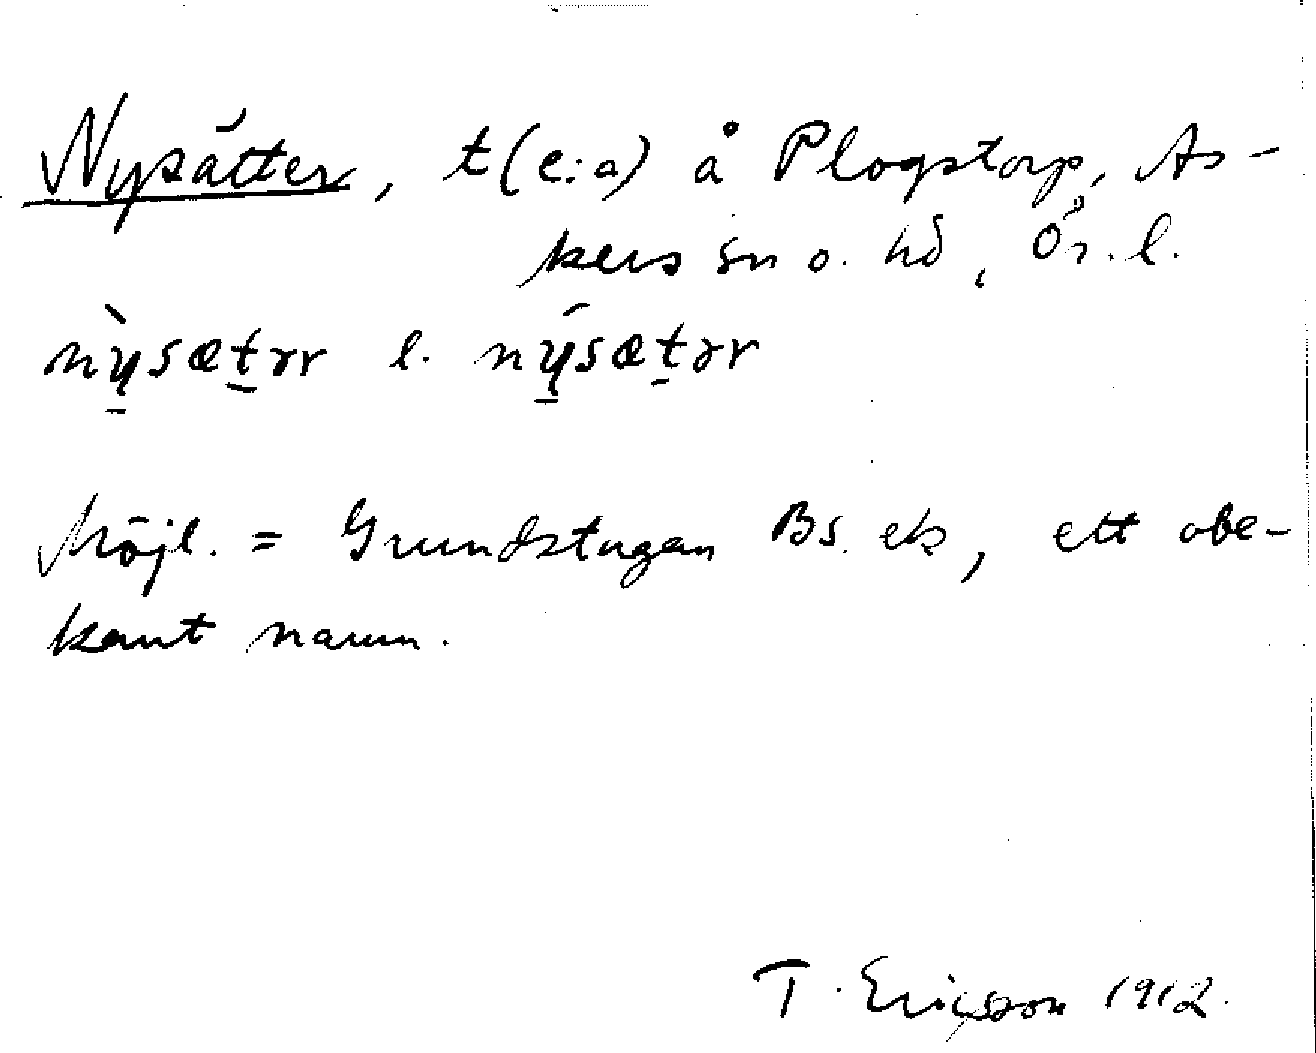 Nysätter, t(e:a) å Plogstorp, As-
kers sn o. hd, Ör. l.
nỳsætər l. nýsætər
Möjl. = Grundstugan Bs. ek, ett obe-
kant namn.
T. Ericsson 1912.